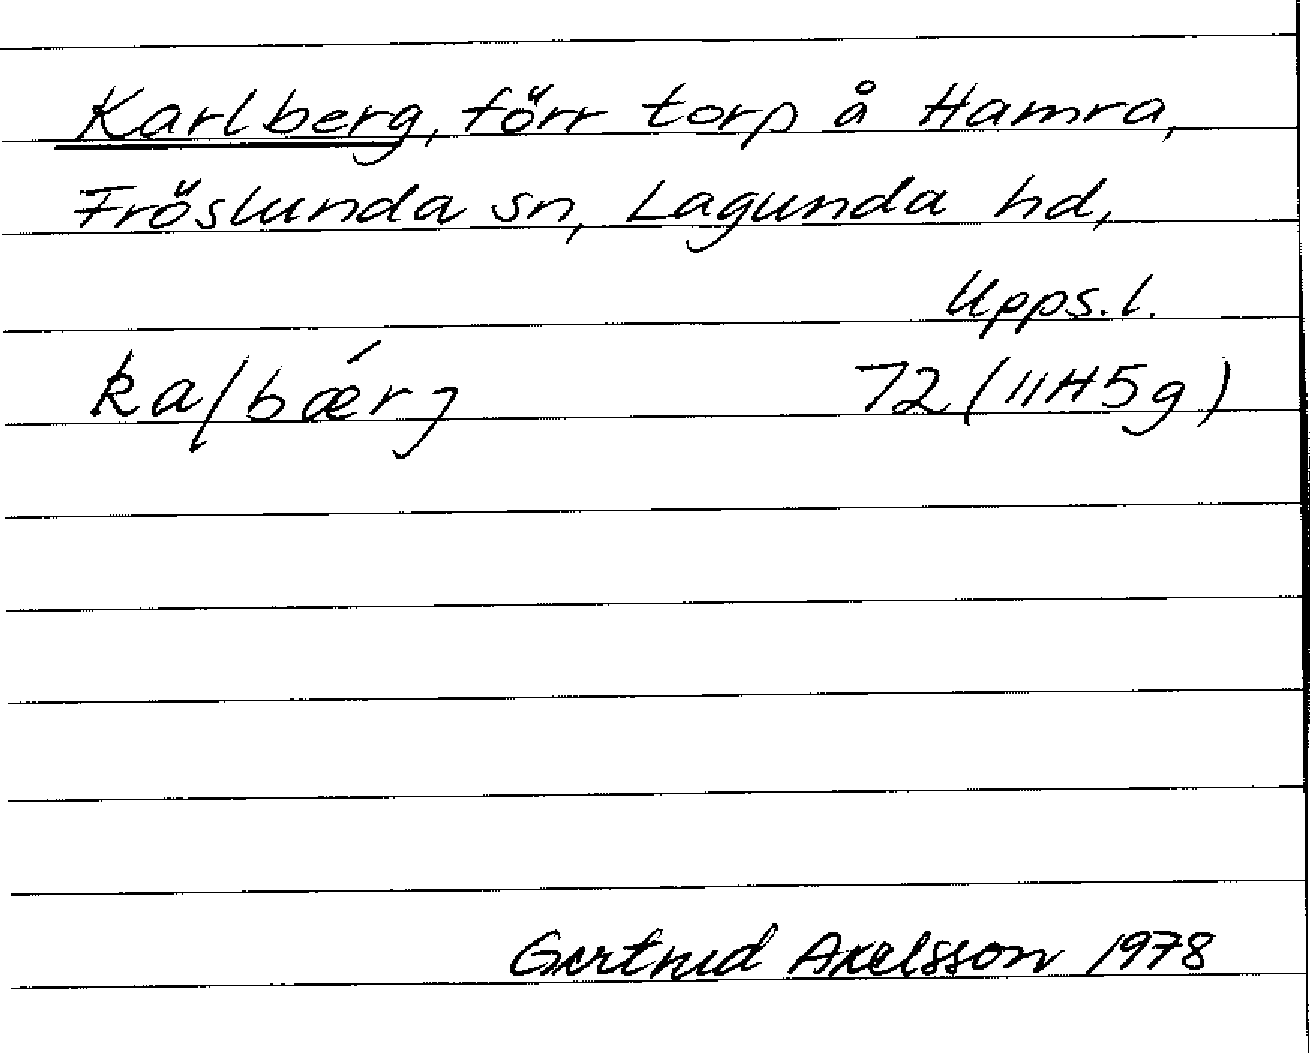 Karlberg, förr torp å Hamra,
Fröslunda sn, Lagunda hd,
Upps. l.
72 (11H5g)
Gertrud Axelsson 1978